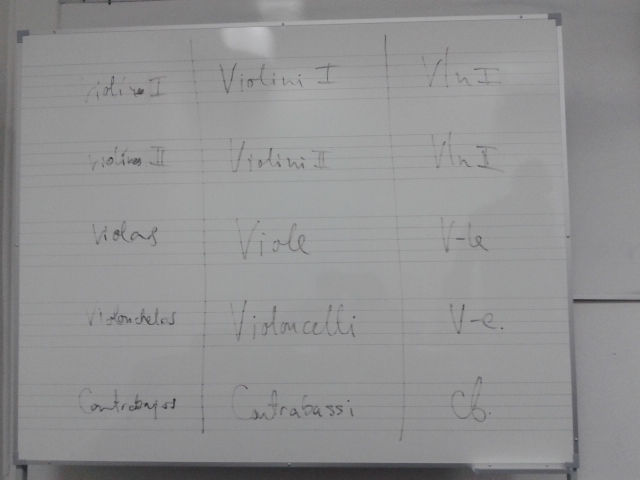 Violines I Violini I Vln I
Violines II Violini II Vln I
Violas Viole V-le
Violonchelos Violoncelli V-c.
Contrabajos Contrabassi Cb.